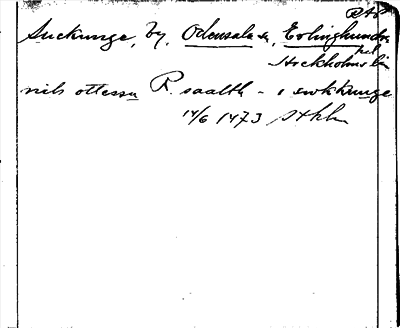 RAP
Suckunge, by, Odensala sn, Erlinghundra
Stockholms län
nils ottessn R. saalth - i swkkunge
14/6 1473 Sthlm